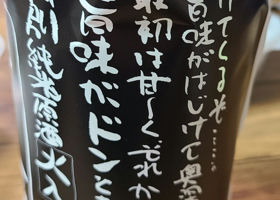 けてくるぞ……
旨味がはじけて奥深
最初は甘〜くそれか
旨味がドンと
純米原酒 火入